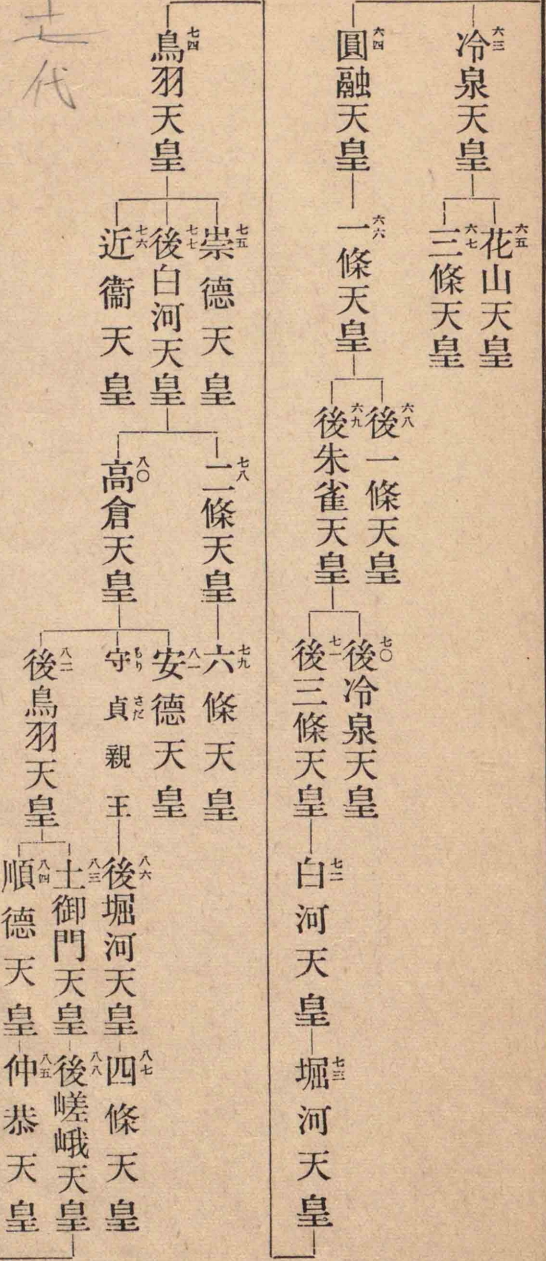 六三 冷泉天皇
六五 花山天皇
六七 三條天皇
六四 圓融天皇
六六 一條天皇
六八 後一條天皇
六九 後朱雀天皇
七〇 後冷泉天皇
七一 後三條天皇
七二 白河天皇
七三 堀河天皇
七四 鳥羽天皇
七五 崇德天皇
七七 後白河天皇
七六 近衞天皇
七八 二條天皇
七九 六條天皇
八〇 高倉天皇
八一 安德天皇
守貞親王 もりさだ
八六 後堀河天皇
八七 四條天皇
八二 後鳥羽天皇
八三 土御門天皇
八八 後嵯峨天皇
八四 順德天皇
八五 仲恭天皇
代